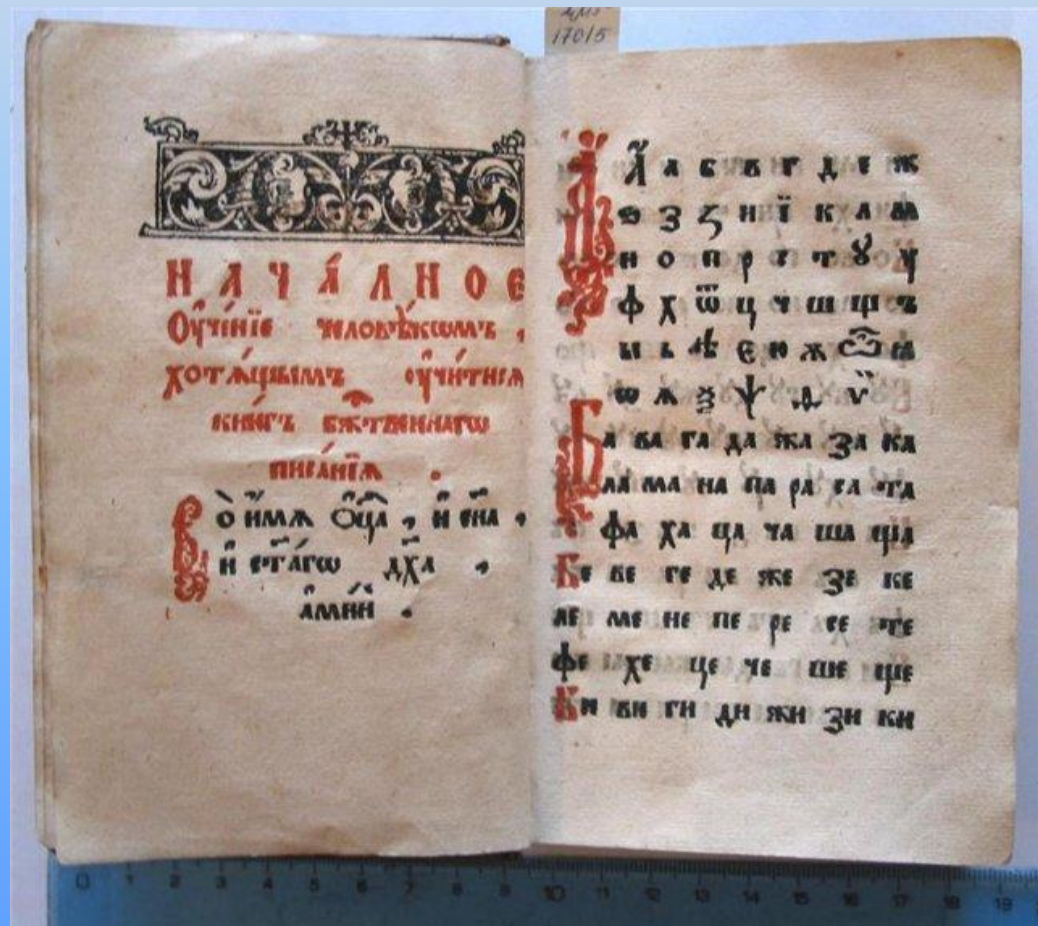 17015
НАЧА́ЛНОЕ
Оу҆че́нїе человѣ́кѡмъ ,
хотѧ́щымъ оу҆чи́тисѧ
кни́гъ бж҃твеннагѡ
писа́нїѧ .
Во̀ и҆́мѧ Ѻ҆ц҃а̀ , и҆ сн҃а ,
и҆ ст҃а́гѡ дх҃а ,
а҆ми́нь .
А҆ а б в г д е ж
ѕ з ꙁ и ї к л м
н о п р с т ꙋ у
ф х ѿ ц ч ш щ ъ
ы ь ѣ є ю ѫ ѽ ꙗ
ѡ ѧ ѯ ѱ ѳ ѵ
Ба ва га да жа за ка
ла ма на па ра са та
фа ха ца ча ша ща
Бе ве ге де же зе ке
ле ме не пе ре се те
фе хе це че ше ще
Би ви ги ди жи зи ки
0 1 2 3 4 5 6 7 8 9 10 11 12 13 14 15 16 17 18 19